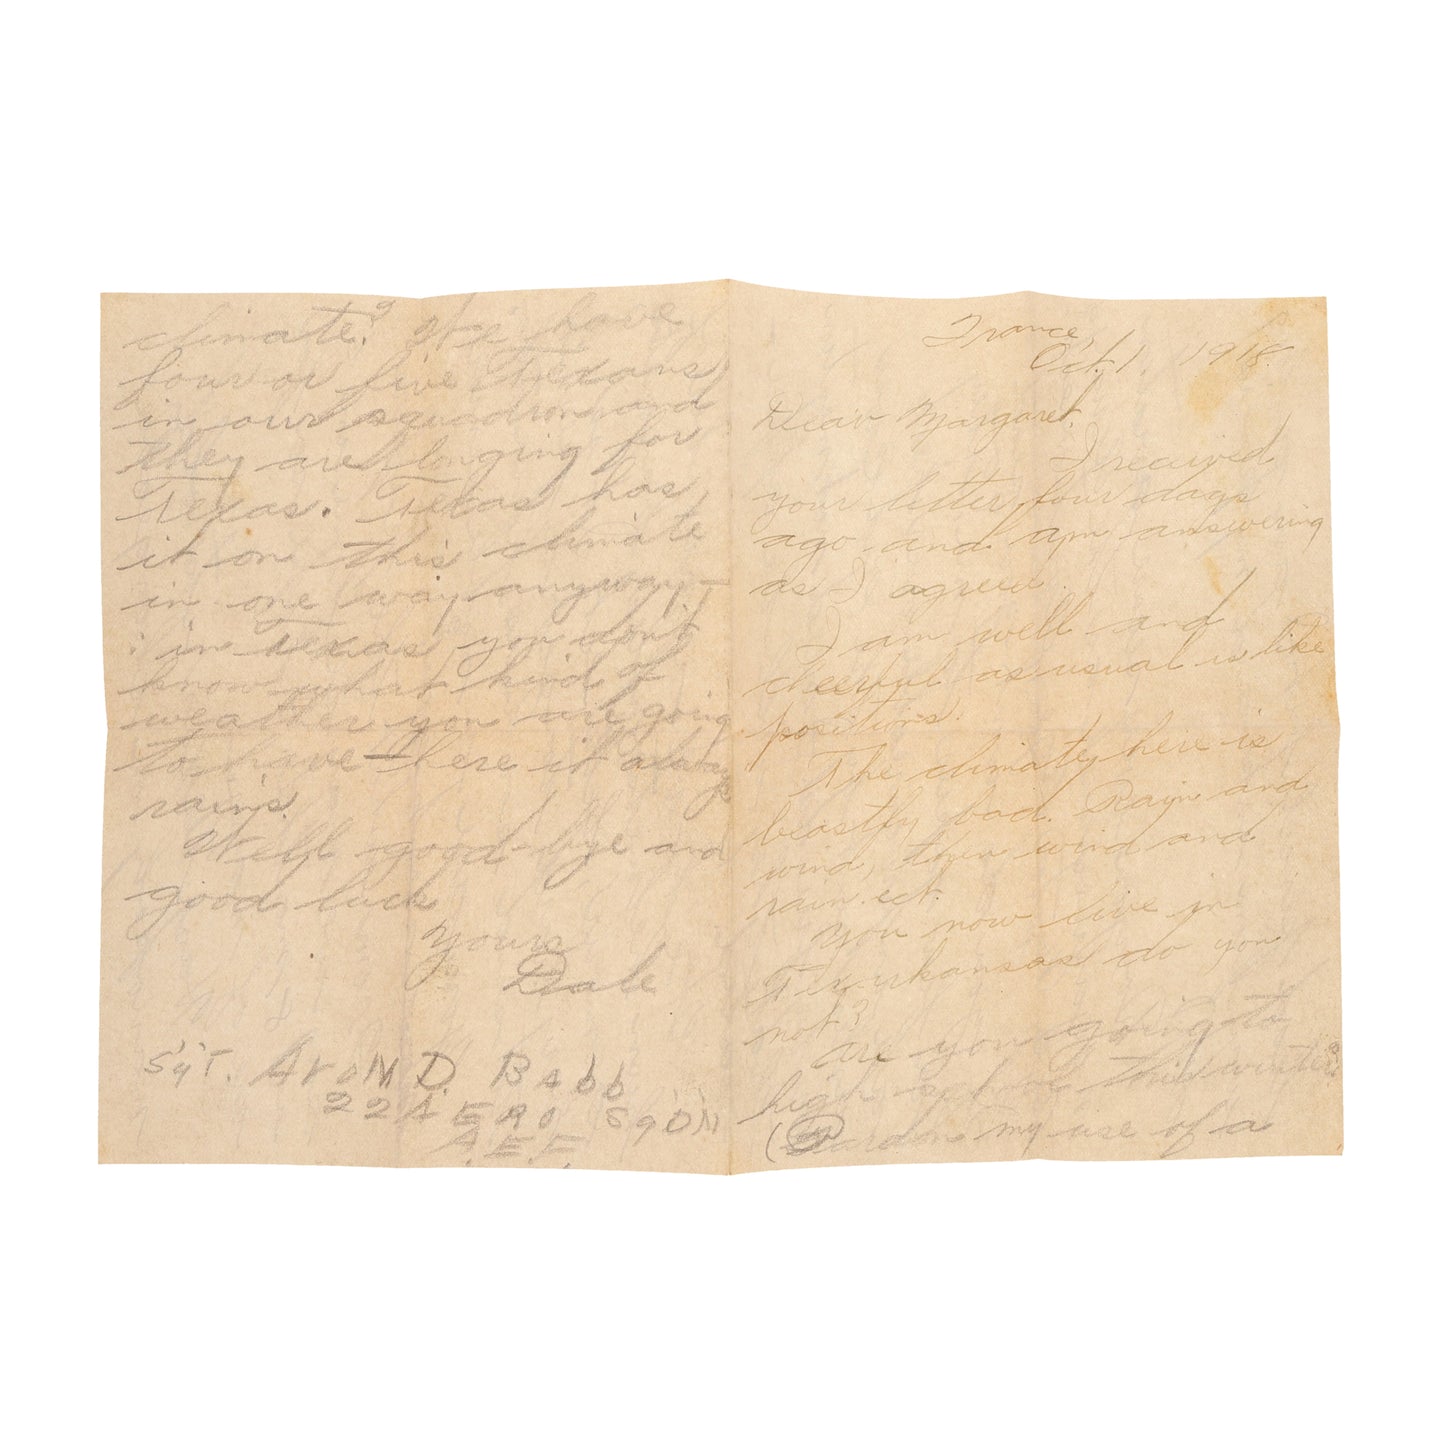 France,
Oct. 1, 1918.
Dear Margaret,
I received
your letter four days
ago and am answering
as I agreed.
I am well and
cheerful as usual is like
positions.
The climate here is
beastly bad. Rain and
wind, then wind and
rain ect.
You now live in
Texarkansas do you
not?
Are you going to
high this winter?
(Pardon my use of a
climate? We have
four or five Texans
in our squadron and
they are longing for
Texas. Texas has
it on this climate
in one way anyway,—
: in Texas you don't
know what kind of
weather you are going
to have—here it always
rains.
Well good-bye and
good luck
Yours
Dale
SgT. Aron D. Babb
22 AERO SqDN
A.E.F.